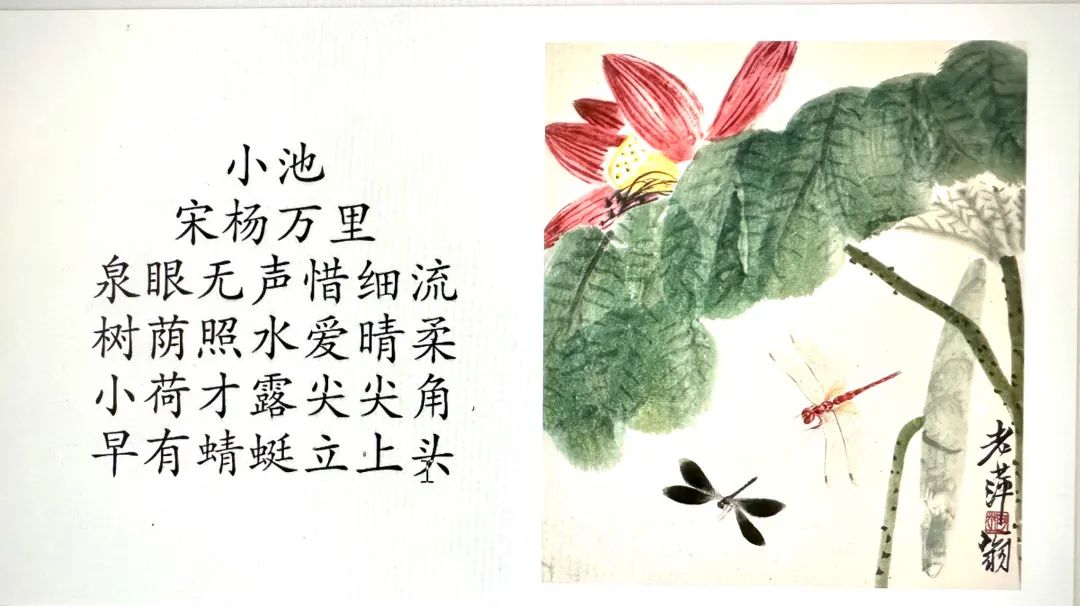 小池
宋杨万里
泉眼无声惜细流
树荫照水爱晴柔
小荷才露尖尖角
早有蜻蜓立上头
老萍
翁